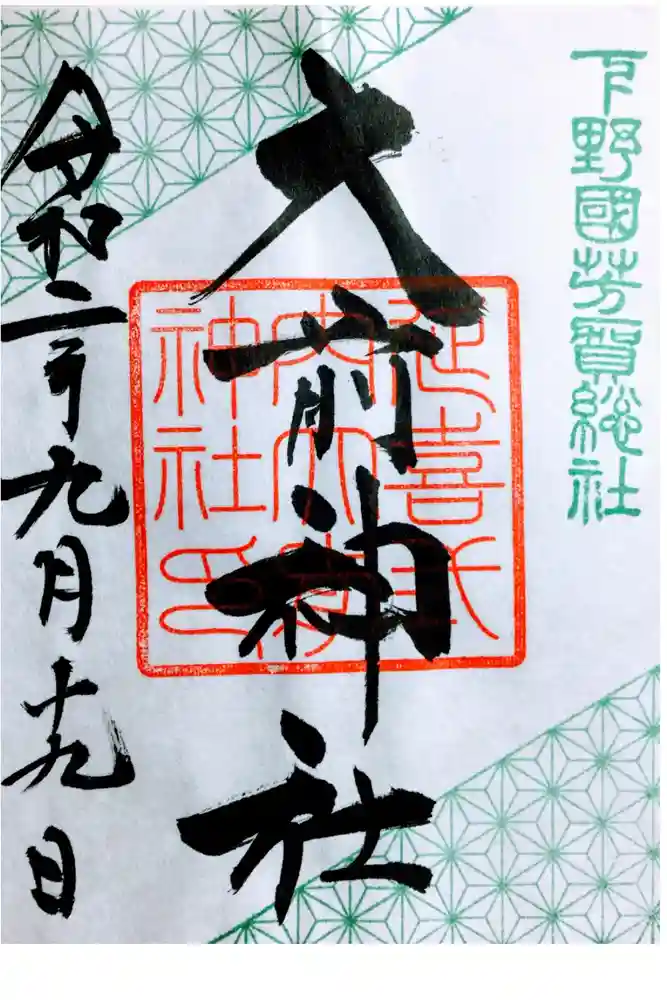 下野國芳賀総社
大前神社
延喜式
内大前
神社印
令和二年九月十九日